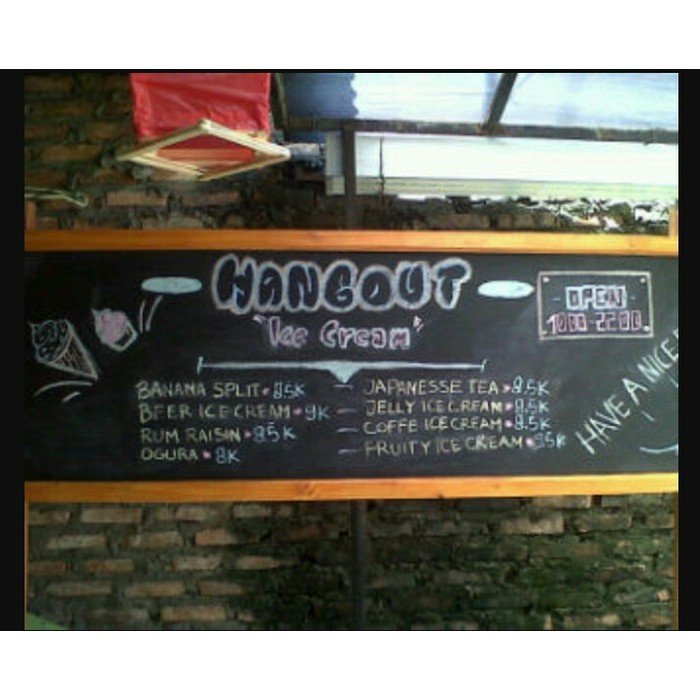 HANGOUT
"Ice Cream"
OPEN
1000-2200
BANANA SPLIT 8.5K
BEER ICE CREAM 9K
RUM RAISIN 8.5K
OGURA 8K
JAPANESSE TEA 8.5K
JELLY ICE CREAM 8.5K
COFFE ICE CREAM 8.5K
FRUITY ICE CREAM 8.5K
HAVE A NICE